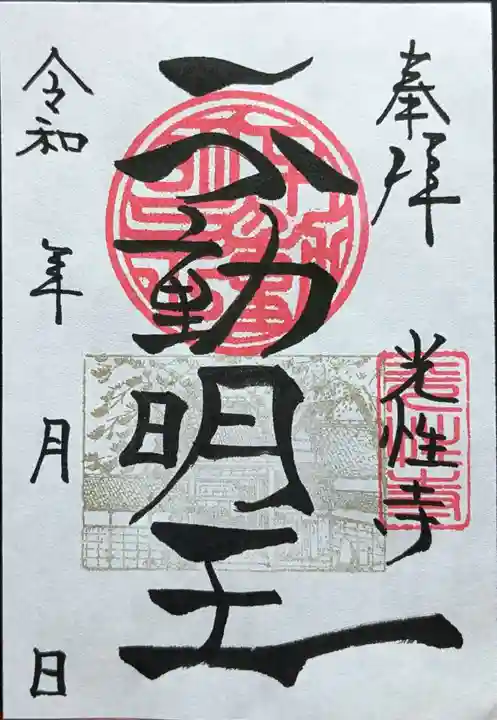 奉拝
光性寺
不動明王
令和 年 月 日
光性寺